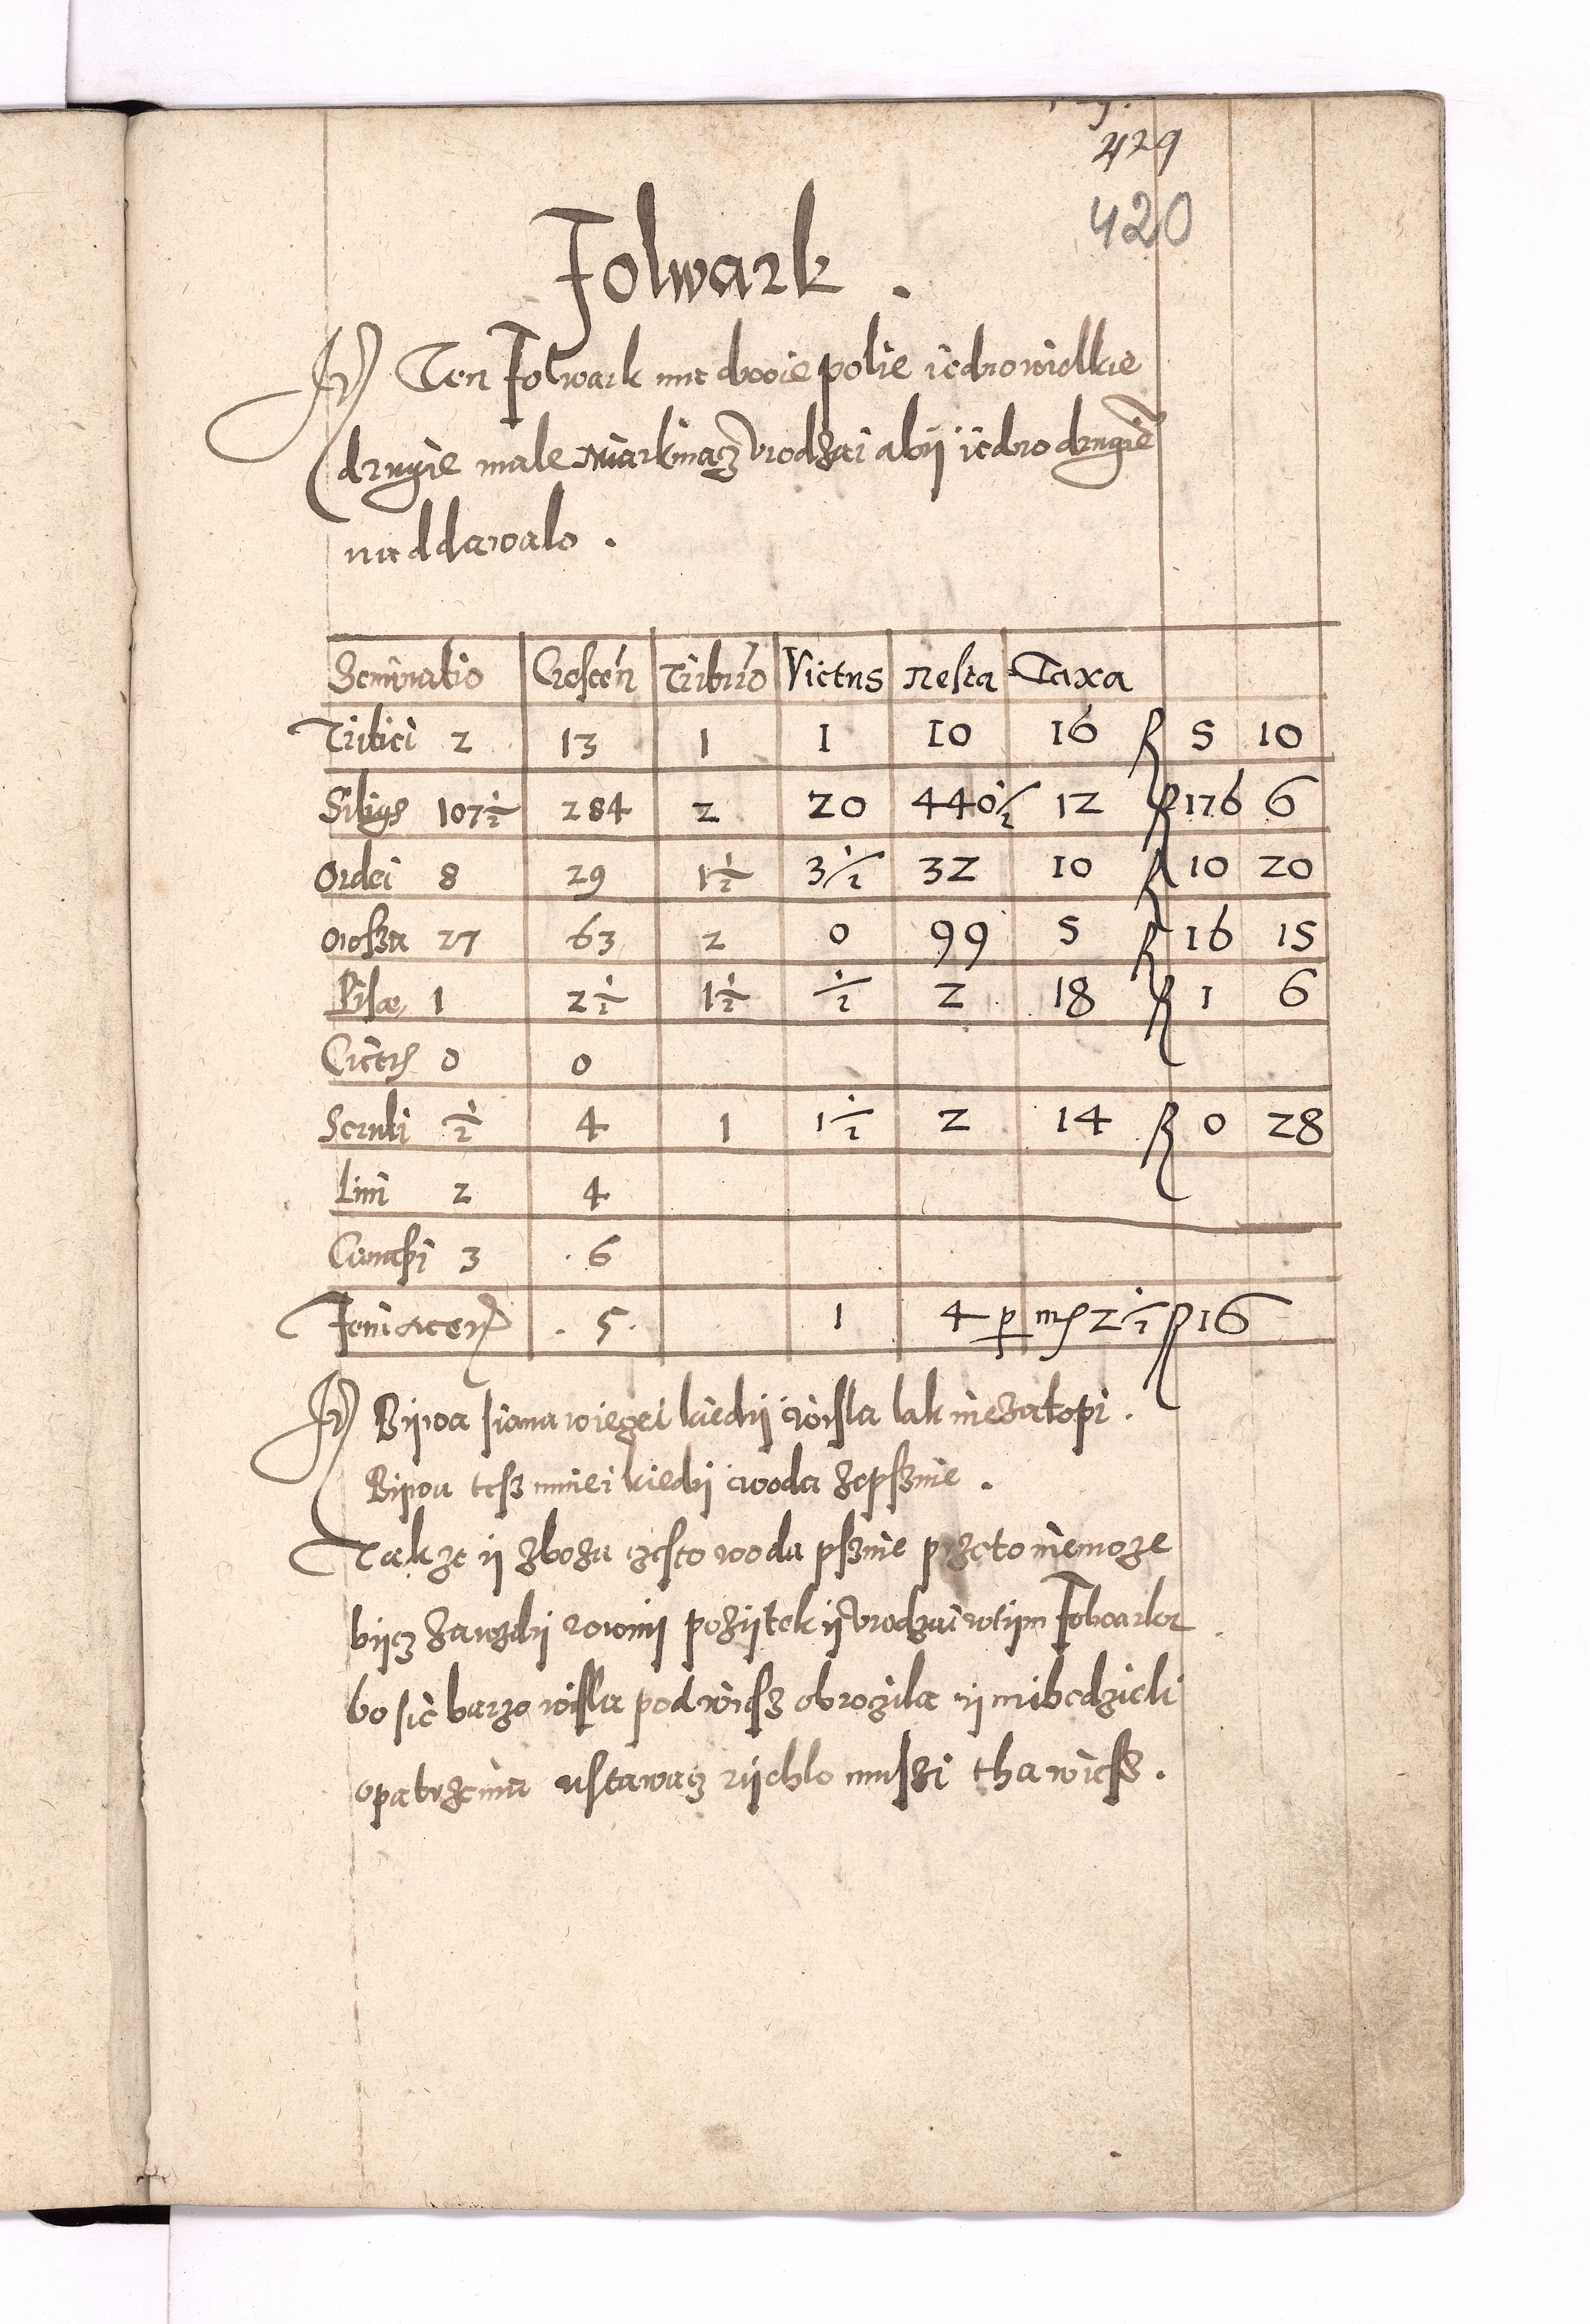 429
420
Folwark .
It Ten Folwark ma dwoie polie iedno wielkie
drugie male urodzai abÿ iedno drugie
naddawalo .
Seminatio Crescen Triturao Victus Resta Taxa
Tritici 2 13 1 1 10 16 R 5 10
Siligs 107 1/2 284 2 20 440 1/2 12 R 176 6
Ordei 8 29 1 1/2 3 1/2 32 10 R 10 20
owsza 27 63 2 0 99 5 R 16 15
Pisæ 1 2 1/2 1 1/2 1/2 2 18 R 1 6
0 0
1/2 4 1 1 1/2 2 14 R 0 28
Lini 2 4
Canapi 3 . 6
Feni acer . 5 . 1 4 p 2 1/2 R 16
It Bÿwa siana wiecei kiedÿ wisla lak niezatopi .
Bÿwa tesz mniei kiedÿ woda zepsznie .
Takze ÿ zboza czesto woda psznie przeto niemoze
bÿcz zawzdÿ rownÿ pozÿtek ÿ urodzai wtÿm Folwarku
bo sie barzo wisla pod wiesz obrocila ÿ niibedzieli
opatrzenia ustawacz rÿchlo muszi tha wiesz .